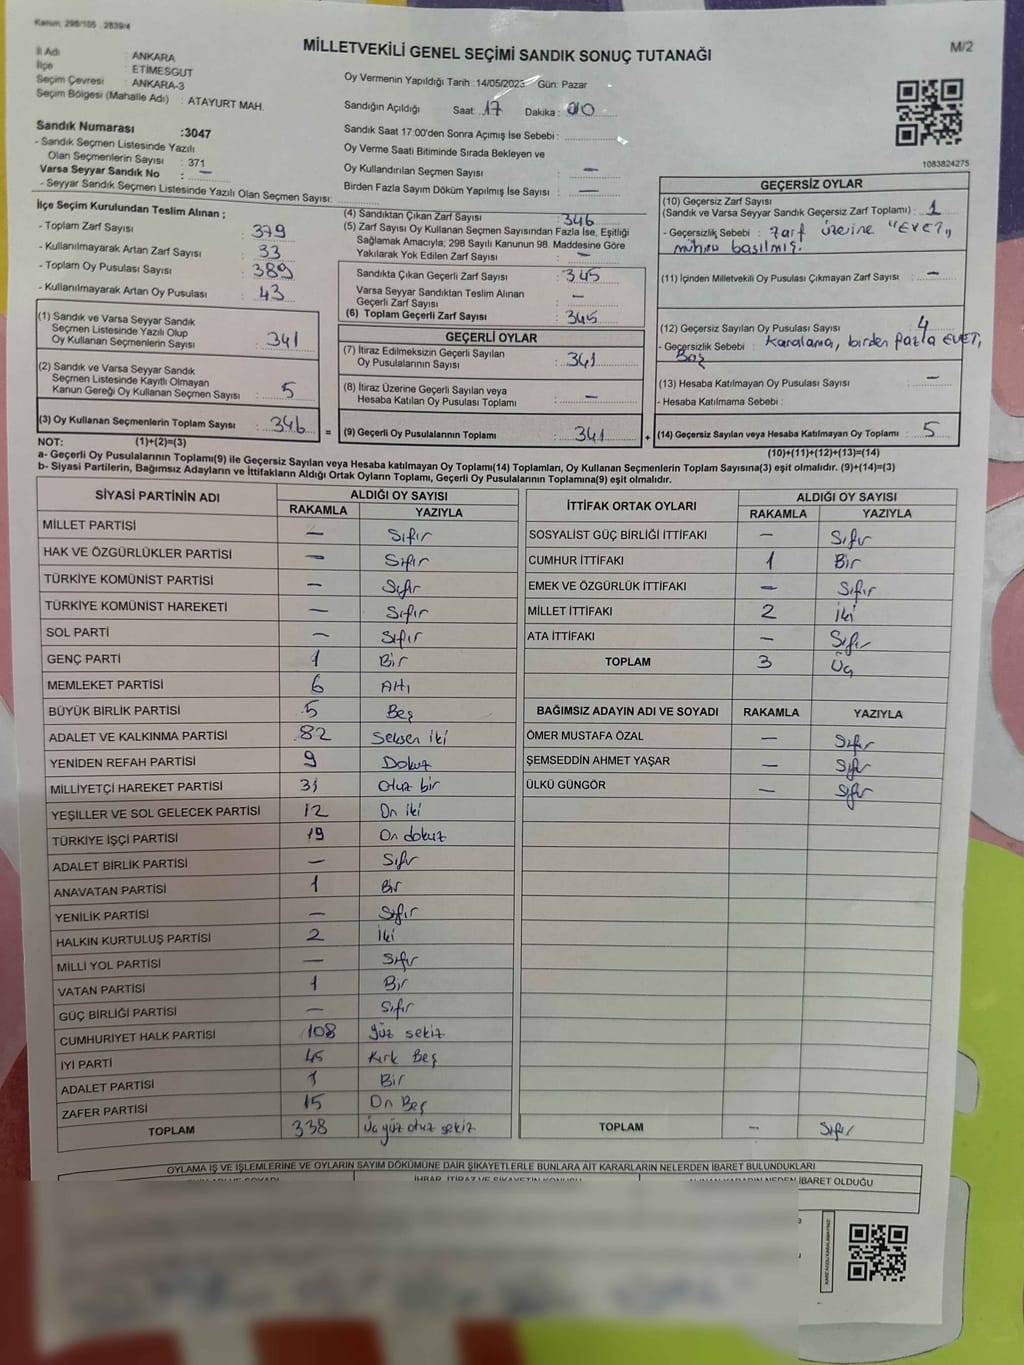 Kanun, 298/105 , 2839/4
MİLLETVEKİLİ GENEL SEÇİMİ SANDIK SONUÇ TUTANAĞI
M/2
İl Adı : ANKARA
İlçe : ETİMESGUT
Seçim Çevresi : ANKARA-3
Seçim Bölgesi (Mahalle Adı) : ATAYURT MAH.
Sandık Numarası :3047
- Sandık Seçmen Listesinde Yazılı
Olan Seçmenlerin Sayısı : 371
Varsa Seyyar Sandık No : —
- Seyyar Sandık Seçmen Listesinde Yazılı Olan Seçmen Sayısı:
Oy Vermenin Yapıldığı Tarih :14/05/2023 Gün: Pazar
Sandığın Açıldığı Saat: 17 Dakika: 00
Sandık Saat 17:00'den Sonra Açımış İse Sebebi :
Oy Verme Saati Bitiminde Sırada Bekleyen ve
Oy Kullandırılan Seçmen Sayısı : —
Birden Fazla Sayım Döküm Yapılmış İse Sayısı : —
1083824275
İlçe Seçim Kurulundan Teslim Alınan ;
- Toplam Zarf Sayısı : 379
- Kullanılmayarak Artan Zarf Sayısı : 33
- Toplam Oy Pusulası Sayısı : 389
- Kullanılmayarak Artan Oy Pusulası : 43
(1) Sandık ve Varsa Seyyar Sandık
Seçmen Listesinde Yazılı Olup
Oy Kullanan Seçmenlerin Sayısı : 341
(2) Sandık ve Varsa Seyyar Sandık
Seçmen Listesinde Kayıtlı Olmayan
Kanun Gereği Oy Kullanan Seçmen Sayısı : 5
(3) Oy Kullanan Seçmenlerin Toplam Sayısı : 346
(4) Sandıktan Çıkan Zarf Sayısı : 346
(5) Zarf Sayısı Oy Kullanan Seçmen Sayısından Fazla İse, Eşitliği
Sağlamak Amacıyla; 298 Sayılı Kanunun 98. Maddesine Göre
Yakılarak Yok Edilen Zarf Sayısı : —
Sandıkta Çıkan Geçerli Zarf Sayısı : 345
Varsa Seyyar Sandıktan Teslim Alınan
Geçerli Zarf Sayısı : —
(6) Toplam Geçerli Zarf Sayısı : 345
GEÇERLİ OYLAR
(7) İtiraz Edilmeksizin Geçerli Sayılan
Oy Pusulalarının Sayısı : 341
(8) İtiraz Üzerine Geçerli Sayılan veya
Hesaba Katılan Oy Pusulası Toplamı : —
= (9) Geçerli Oy Pusulalarının Toplamı : 341
GEÇERSİZ OYLAR
(10) Geçersiz Zarf Sayısı
(Sandık ve Varsa Seyyar Sandık Geçersiz Zarf Toplamı) : 1
- Geçersizlik Sebebi : Zarf üzerine "EVET"
mührü basılmış.
(11) İçinden Milletvekili Oy Pusulası Çıkmayan Zarf Sayısı : —
(12) Geçersiz Sayılan Oy Pusulası Sayısı : 4
- Geçersizlik Sebebi : Karalama, birden fazla EVET,
Boş
(13) Hesaba Katılmayan Oy Pusulası Sayısı : —
- Hesaba Katılmama Sebebi :
+ (14) Geçersiz Sayılan veya Hesaba Katılmayan Oy Toplamı : 5
NOT: (1)+(2)=(3)
(10)+(11)+(12)+(13)=(14)
a- Geçerli Oy Pusulalarının Toplamı(9) ile Geçersiz Sayılan veya Hesaba katılmayan Oy Toplamı(14) Toplamları, Oy Kullanan Seçmenlerin Toplam Sayısına(3) eşit olmalıdır. (9)+(14)=(3)
b- Siyasi Partilerin, Bağımsız Adayların ve İttifakların Aldığı Ortak Oyların Toplamı, Geçerli Oy Pusulalarının Toplamına(9) eşit olmalıdır.
SİYASİ PARTİNİN ADI ALDIĞI OY SAYISI
RAKAMLA YAZIYLA
MİLLET PARTİSİ — Sıfır
HAK VE ÖZGÜRLÜKLER PARTİSİ — Sıfır
TÜRKİYE KOMÜNİST PARTİSİ — Sıfır
TÜRKİYE KOMÜNİST HAREKETİ — Sıfır
SOL PARTİ — Sıfır
GENÇ PARTİ 1 Bir
MEMLEKET PARTİSİ 6 Altı
BÜYÜK BİRLİK PARTİSİ 5 Beş
ADALET VE KALKINMA PARTİSİ 82 Seksen iki
YENİDEN REFAH PARTİSİ 9 Dokuz
MİLLİYETÇİ HAREKET PARTİSİ 31 Otuz bir
YEŞİLLER VE SOL GELECEK PARTİSİ 12 On iki
TÜRKİYE İŞÇİ PARTİSİ 19 On dokuz
ADALET BİRLİK PARTİSİ — Sıfır
ANAVATAN PARTİSİ 1 Bir
YENİLİK PARTİSİ — Sıfır
HALKIN KURTULUŞ PARTİSİ 2 İki
MİLLİ YOL PARTİSİ — Sıfır
VATAN PARTİSİ 1 Bir
GÜÇ BİRLİĞİ PARTİSİ — Sıfır
CUMHURİYET HALK PARTİSİ 108 Yüz sekiz
İYİ PARTİ 45 Kırk Beş
ADALET PARTİSİ 1 Bir
ZAFER PARTİSİ 15 On Beş
TOPLAM 338 Üç yüz otuz sekiz
İTTİFAK ORTAK OYLARI ALDIĞI OY SAYISI
RAKAMLA YAZIYLA
SOSYALİST GÜÇ BİRLİĞİ İTTİFAKI — Sıfır
CUMHUR İTTİFAKI 1 Bir
EMEK VE ÖZGÜRLÜK İTTİFAKI — Sıfır
MİLLET İTTİFAKI 2 İki
ATA İTTİFAKI — Sıfır
TOPLAM 3 Üç
BAĞIMSIZ ADAYIN ADI VE SOYADI RAKAMLA YAZIYLA
ÖMER MUSTAFA ÖZAL — Sıfır
ŞEMSEDDİN AHMET YAŞAR — Sıfır
ÜLKÜ GÜNGÖR — Sıfır
TOPLAM — Sıfır
OYLAMA İŞ VE İŞLEMLERİNE VE OYLARIN SAYIM DÖKÜMÜNE DAİR ŞİKAYETLERLE BUNLARA AİT KARARLARIN NELERDEN İBARET BULUNDUKLARI
İHBAR, İTİRAZ VE ŞİKAYETİN KONUSU
NEDEN İBARET OLDUĞU